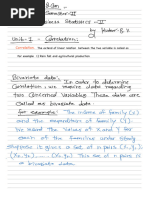 B.Com
Semester-II
Business Statistics - II
by Hudeer. B. X
Unit-I - Correlation:
Correlation: The extend of linear relation between the two variables is called as
for example: 1) Rain fall and agricultural production.
Bivariate data: In order to determine
Correlation; we require data regarding
two concerned variables. These data are
called as bivariate data
for example: The income of family (x)
and the expenditure of family (y).
We may collect for each
of the families under study
suppose it consist of n pairs
(x₂, y₂), ...... (xₙ, yₙ). This set of n pairs is
a bivariate data.